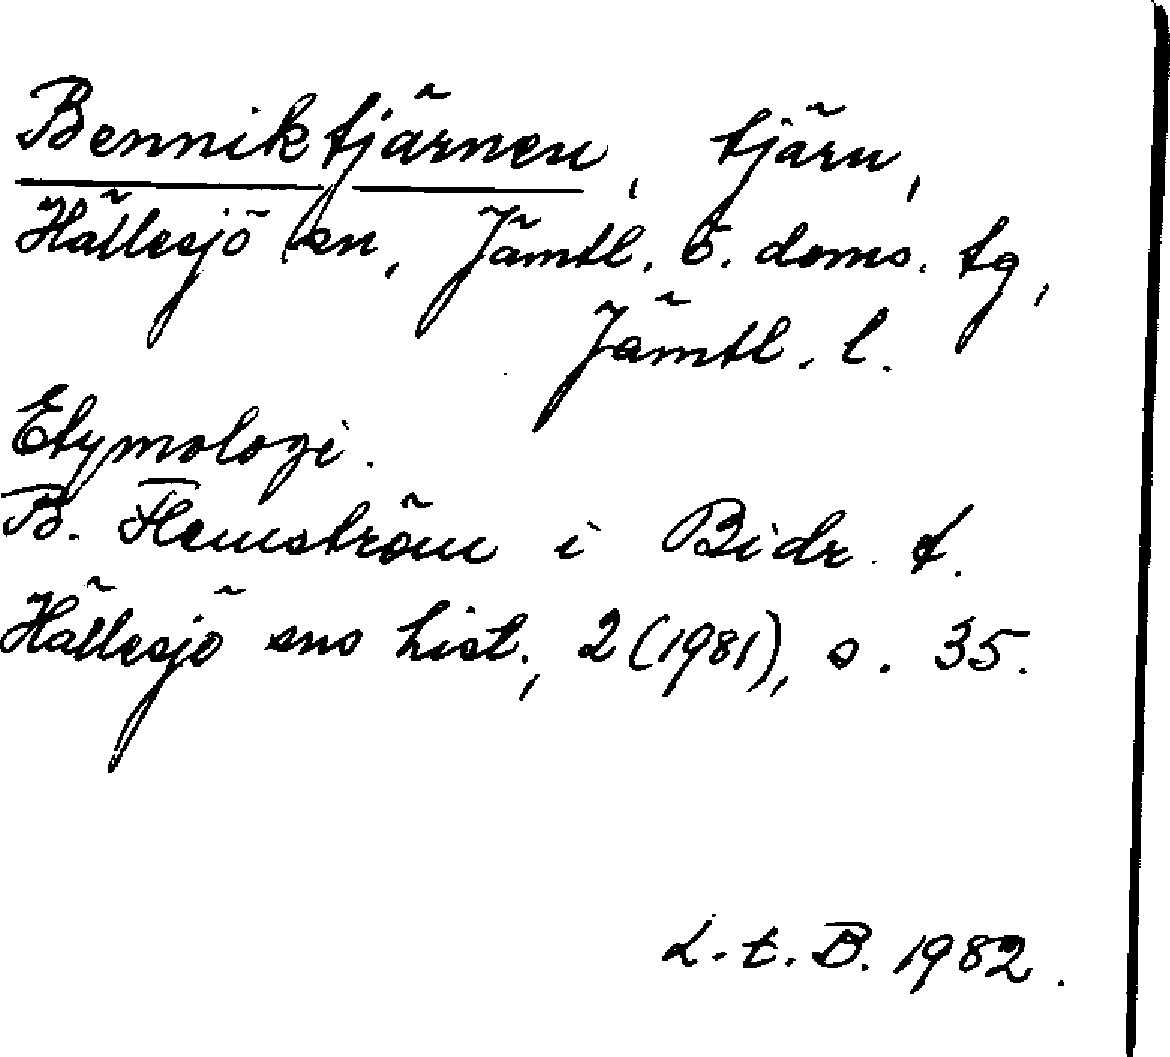 Benniktjärnen, tjärn,
Hällesjö sn, Jämtl. ö. doms. tg,
Jämtl. l.
Etymologi.
B. Flemström i Bidr. t.
Hällesjö sns hist., 2 (1981), s. 35.
L.t.B. 1982.